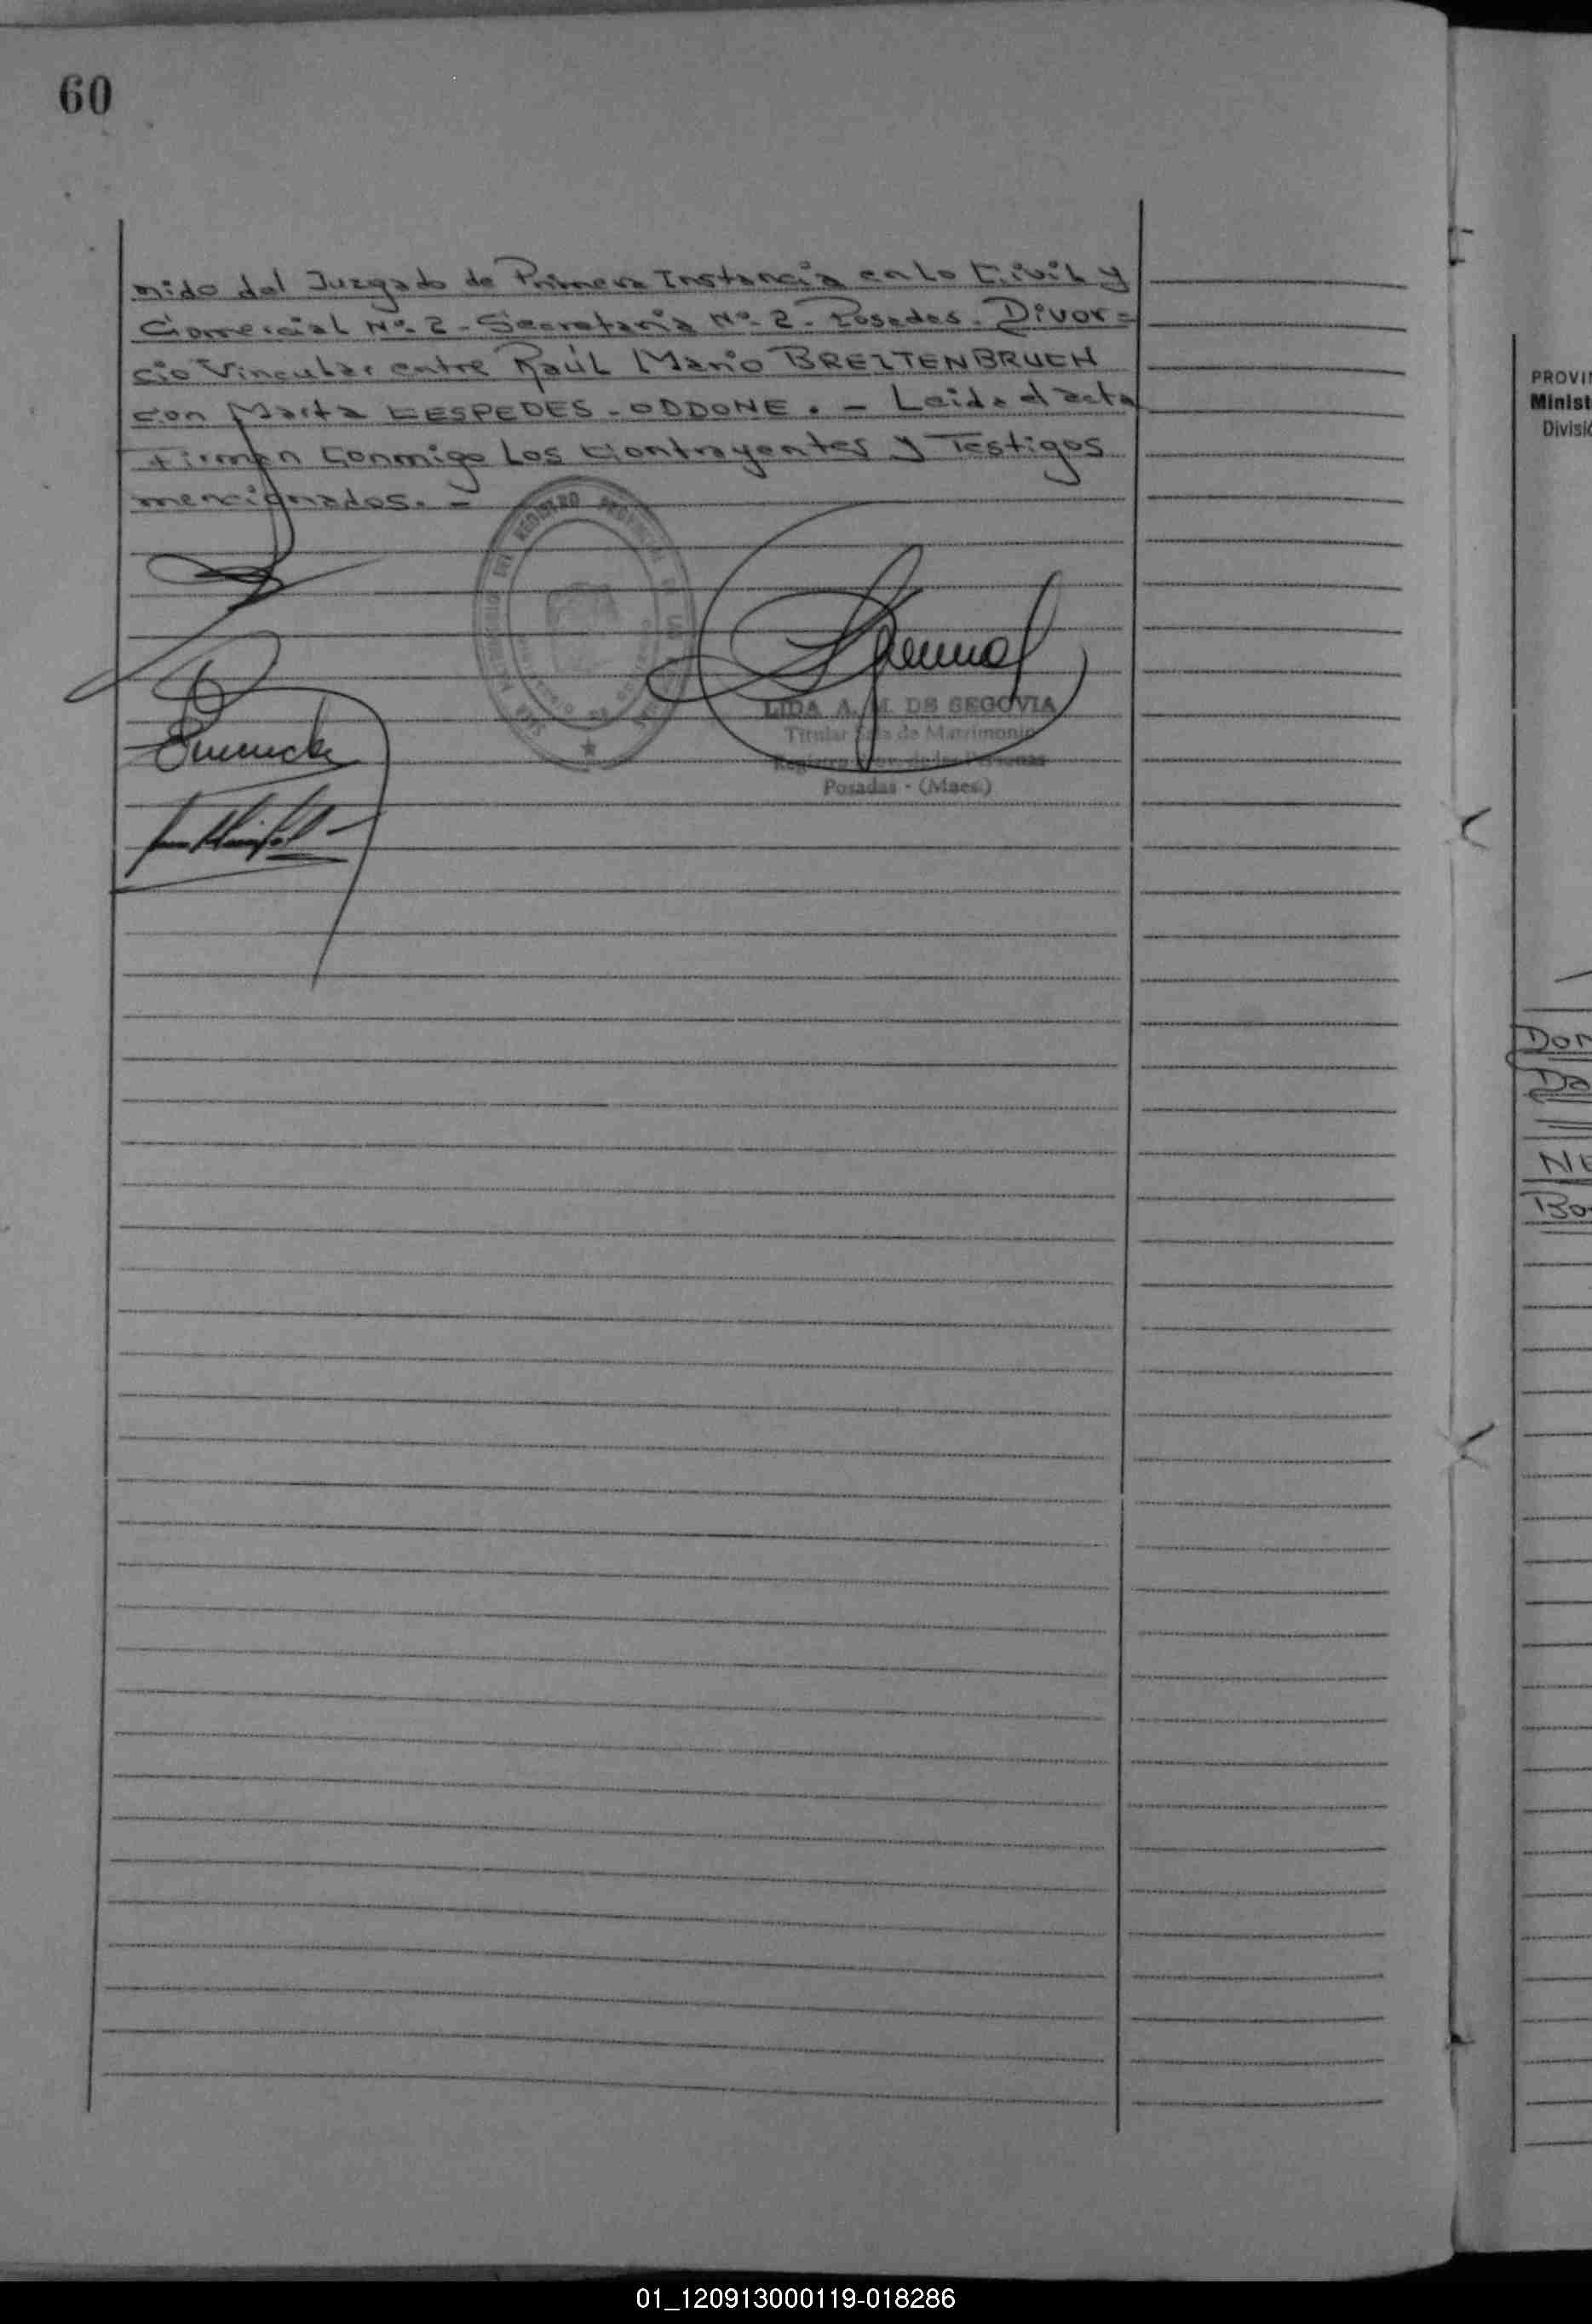 60
nido del Juzgado de Primera Instancia en lo Civil y
Comercial Nº 2 - Secretaría Nº 2 - Posadas. Divor=
cio Vincular entre Raúl Mario BREITENBRUCH
con Marta CESPEDES - ODDONE. - Leida el acta
firman conmigo los contrayentes y Testigos
mencionados. -
REGISTRO PROVINCIAL DE LAS
LIDA A. M. DE SEGOVIA
Titular Sala de Matrimonio
Registro Prov. de las Personas
Posadas - (Mnes.)
PROVI
Minist
Divisió
Don
Da
NU
Bo
01_120913000119-018286